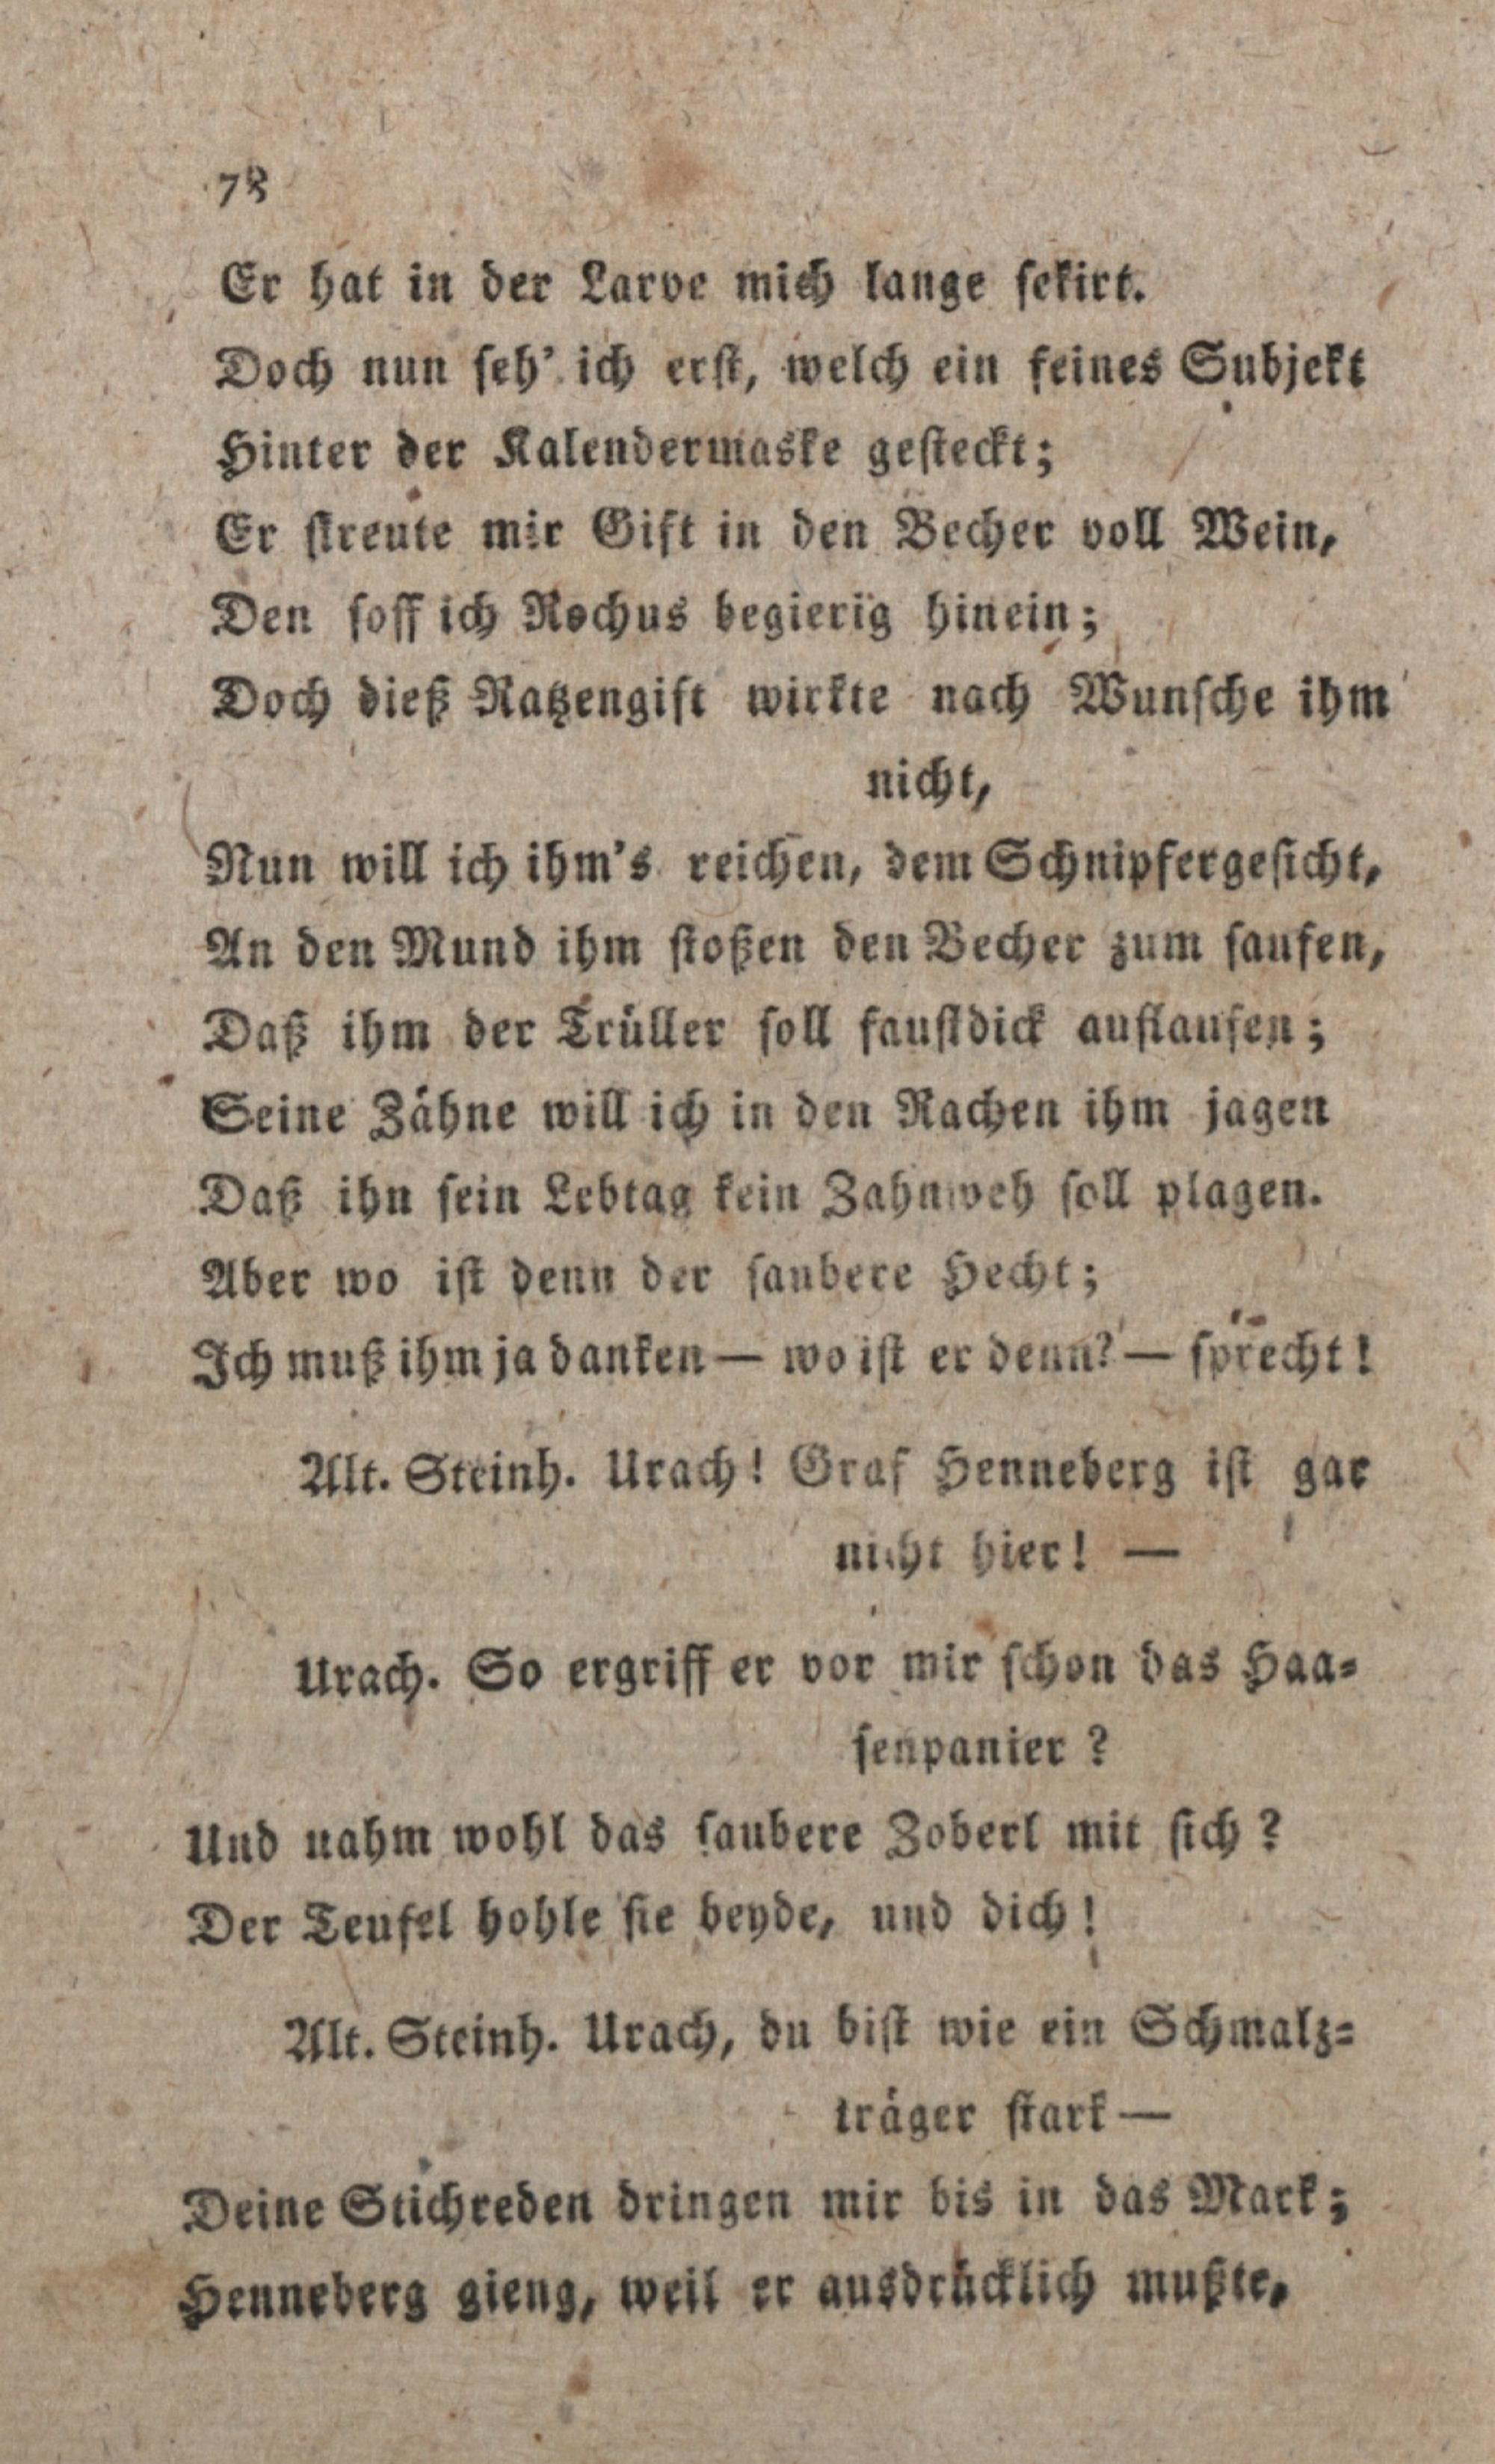 78
Er hat in der Larve mich lange sekirt.
Doch nun seh' ich erst, welch ein feines Subjekt
Hinter der Kalendermaske gesteckt;
Er streute mir Gift in den Becher voll Wein,
Den soff ich Rochus begierig hinein;
Doch dieß Ratzengift wirkte nach Wunsche ihm
nicht,
Nun will ich ihm's reichen, dem Schnipfergesicht,
An den Mund ihm stoßen den Becher zum saufen,
Daß ihm der Trüller soll faustdick auflaufen;
Seine Zähne will ich in den Rachen ihm jagen
Daß ihn sein Lebtag kein Zahnweh soll plagen.
Aber wo ist denn der saubere Hecht;
Ich muß ihm ja danken — wo ist er denn? — sprecht!
Alt. Steinh. Urach! Graf Henneberg ist gar
nicht hier! —
Urach. So ergriff er vor mir schon das Haa-
senpanier?
Und nahm wohl das saubere Zoberl mit sich?
Der Teufel hohle sie beyde, und dich!
Alt. Steinh. Urach, du bist wie ein Schmalz-
träger stark —
Deine Stichreden dringen mir bis in das Mark;
Henneberg gieng, weil er ausdrücklich mußte,